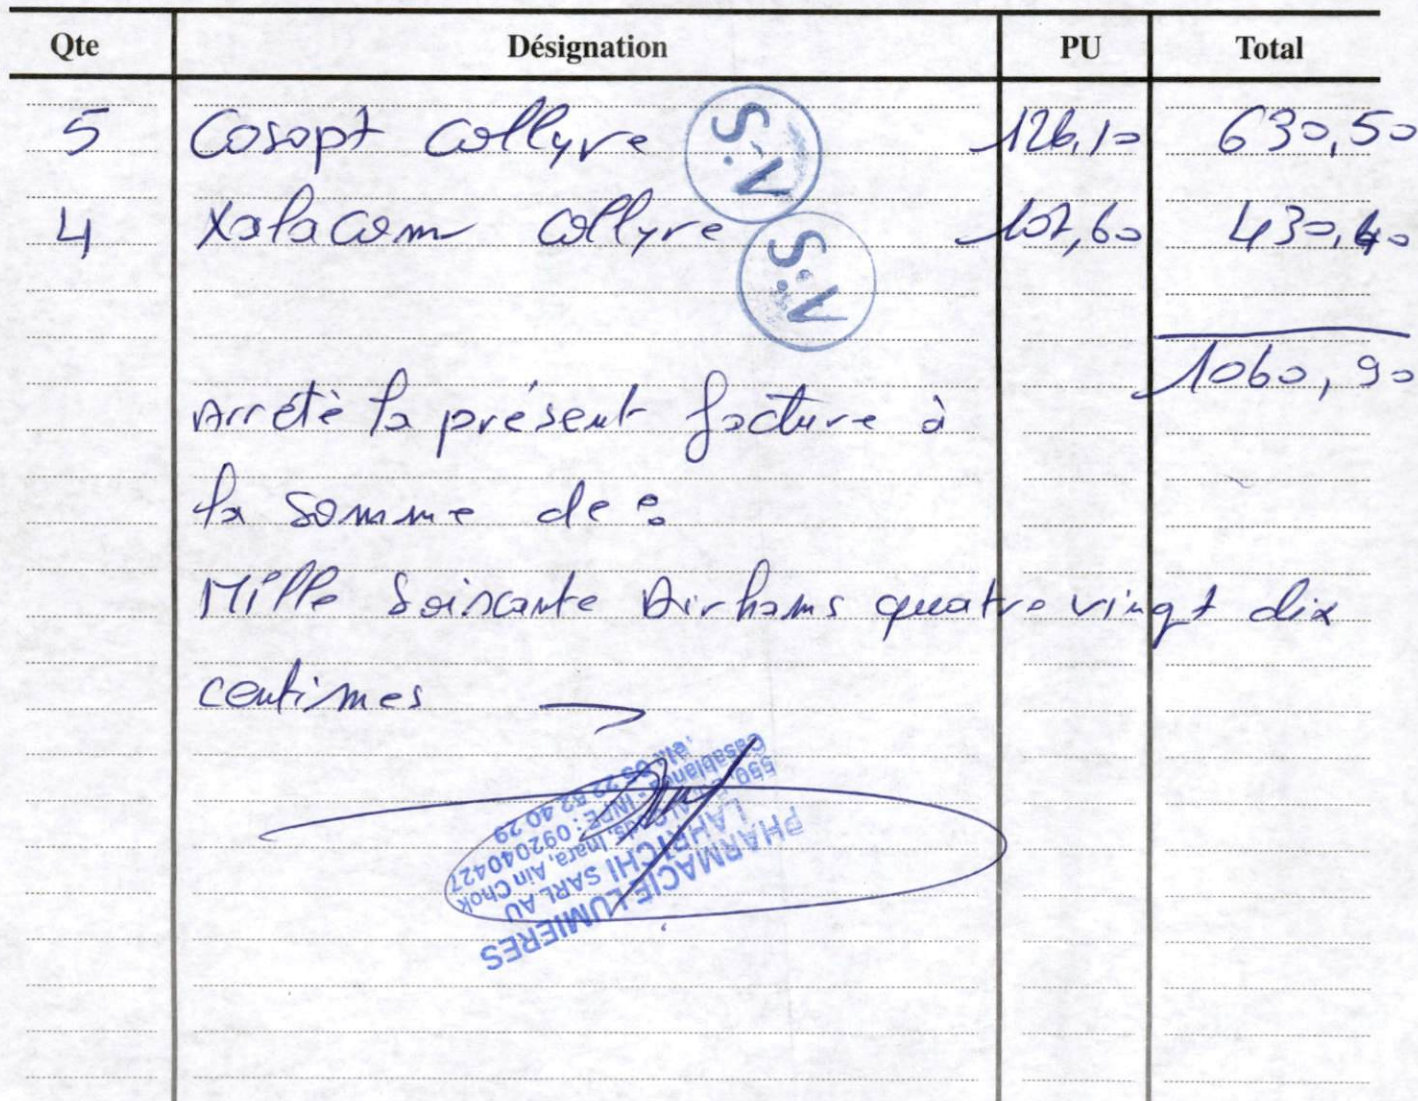 Qte Désignation PU Total
5 Cosopt Collyre S.V 126,10 630,50
4 Xalacom Collyre S.V 107,60 430,40
1060,90
Arrété la présent facture à
la somme de :
Mille Soixante Dirhams quatre vingt dix
centimes
PHARMACIE LUMIERES
LAHRICHI SARL AU
Inara, Ain Chok
INPE : 092040427
05 22 52 40 29